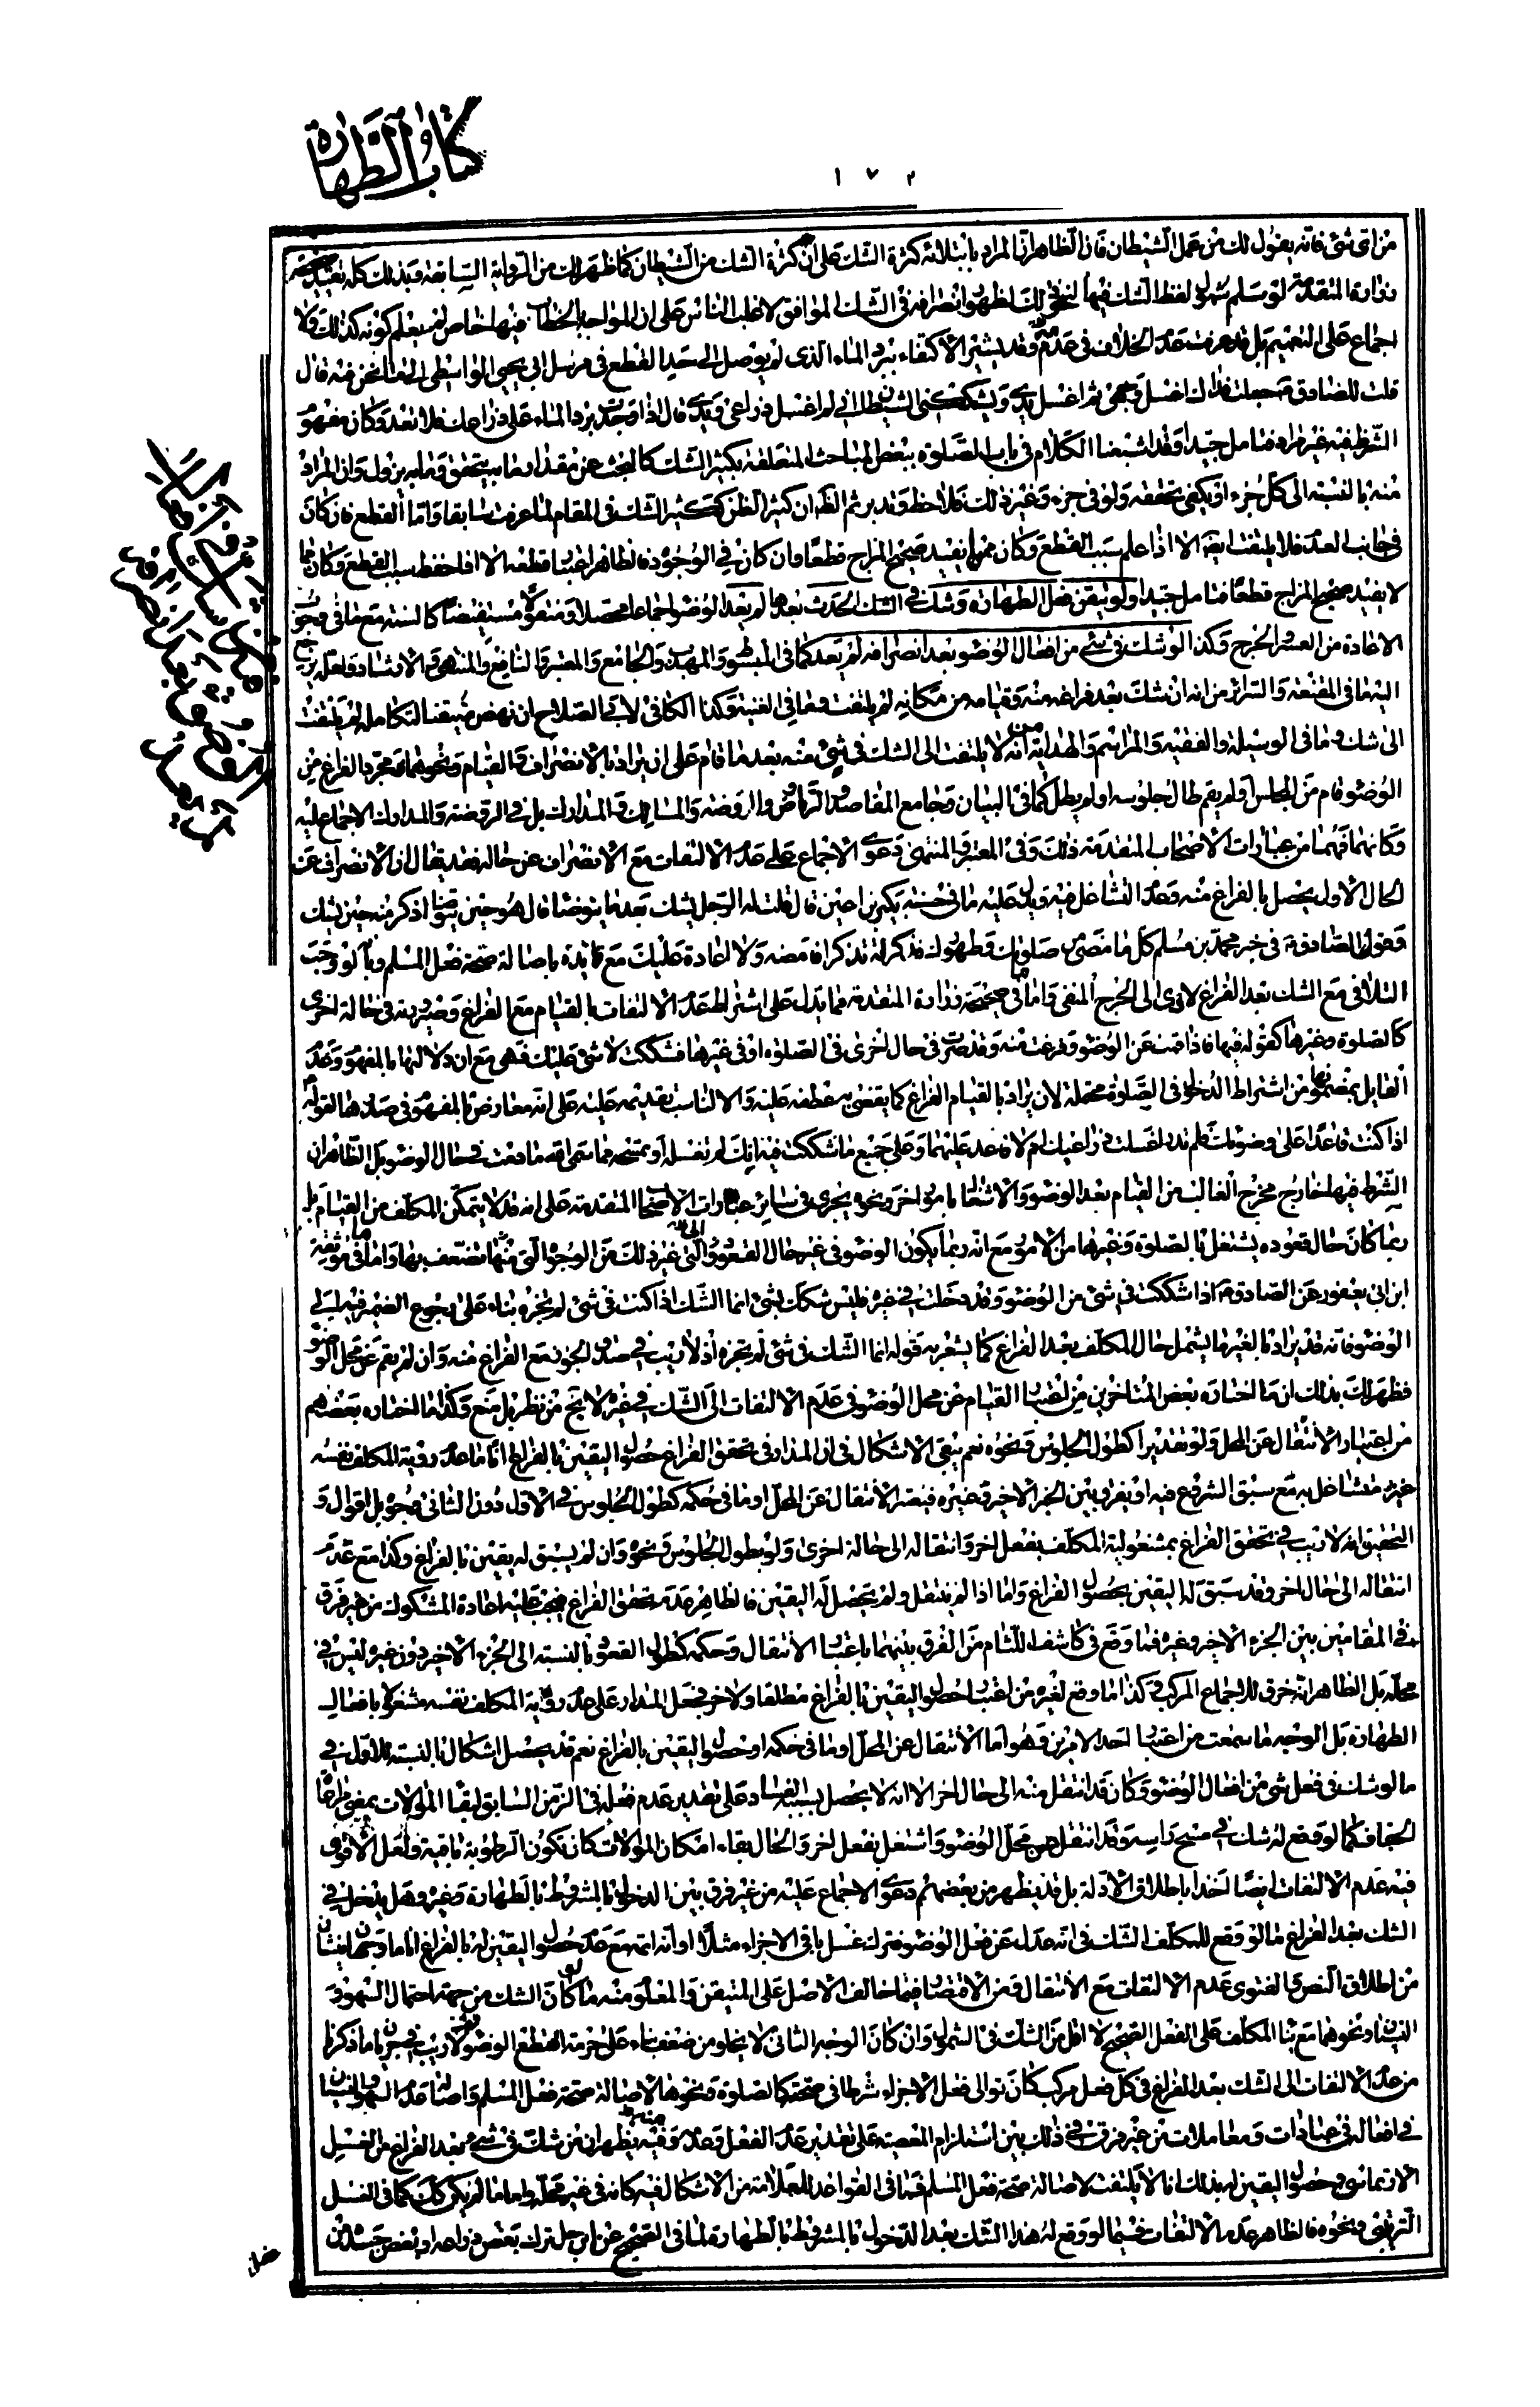 كتاب الطهارة
١٧٢
من اى شئ فانه يقول لك من عمل الشيطان فان الظاهر ان المراد بابتلائه كثرة الشك على ان كثرة الشك من الشيطان كما ظهر لك من الرواية السابقة وبذلك كله يقيد صحيحة
زرارة المتقدمة لو سلم شمول لفظ الشك فيها لنحو ذلك لظهور انصرافه فى الشك الموافق لاغلب الناس على ان المواجه بالخطاب فيها خاص لم يعلم كونه كذلك ولا
اجماع على التعميم بل قد عرفت عدم الخلاف فى عدمه وقد يشير الاكتفاء ببرد الماء الذى لم يوصل الى حد القطع فى مرسل ابى يحيى الواسطى الى ما نحن فيه قال
قلت للصادق ع جعلت فداك اغسل وجهى ثم اغسل يدى ويشككنى الشيطان انى لم اغسل ذراعى ويدى قال اذا وجدت برد الماء على ذراعك فلا تعد وكان مفهوم
الشرطية غير مراد فتامل جيدا وقد اشبعنا الكلام فى باب الصلوة ببعض المباحث المتعلقة بكثير الشك كالبحث عن مقدار ما به يتحقق وما به يزول وان المراد
منه بالنسبة الى كل جزء او يكفى تحققه ولو فى جزء وغير ذلك فلاحظ وتدبر ثم الظاهر ان كثير الظن ككثير الشك فى المقام لما عرفت سابقا واما القطع فان كان
فى جانب العدم فلا يلتفت ايضا الا اذا علم سبب القطع وكان مما يفيد صحيح المزاج قطعا وان كان فى الوجود فالظاهر اعتبار قطعه الا اذا حفظ سبب القطع وكان مما
لا يفيد صحيح المزاج قطعا فتامل جيدا ولو تيقن فعل الطهارة وشك فى الحدث بعدها لم يعد الوضوء اجماعا محصلا ومنقولا مستفيضا كالسنة مع ما فى وجوب
الاعادة من العسر والحرج وكذا لو شك فى شئ من افعال الوضوء بعد انصرافه لم يعد كما فى المبسوط والمهذب والجامع والمعتبر والنافع والمنتهى والارشاد ولعله يرجع
اليه ما فى المقنعة والسرائر من انه ان شك بعد فراغه منه وقيامه من مكانه لم يلتفت وما فى الغنية وكذا الكافى لابى الصلاح ان نهض متيقنا لتكامله لم يلتفت
الى شك وما فى الوسيلة والفقيه والمراسم والهداية من انه لا يلتفت الى الشك فى شئ منه بعد ما قام على ان يراد بالانصراف والقيام ونحوهما مجرد الفراغ من
الوضوء قام من المجلس او لم يقم طال جلوسه او لم يطل كما فى البيان وجامع المقاصد والرياض والروضة والمسالك والمدارك بل فى الروضة والمدارك الاجماع عليه
وكانهما فهما من عبارات الاصحاب المتقدمة ذلك وفى المعتبر والمنتهى دعوى الاجماع على عدم الالتفات مع الانصراف عن حاله بعد يقال ان الانصراف عن
الحال الاول يحصل بالفراغ منه وعدم التشاغل فيه ويدل عليه ما فى حسنة بكير بن اعين قال قلت له الرجل يشك بعد ما يتوضأ قال هو حين يتوضأ اذكر منه حين يشك
وقول الصادق ع فى خبر محمد بن مسلم كل ما مضى من صلوتك وطهورك فذكرته تذكرا فامضه ولا اعادة عليك مع تاييده باصالة صحة فعل المسلم وبانه لو وجب
التلافى مع الشك بعد الفراغ لادى الى الحرج المنفى واما ما فى صحيحة زرارة المتقدمة مما يدل على اشتراط عدم الالتفات بالقيام مع الفراغ وصيرورته فى حالة اخرى
كالصلوة وغيرها كقوله فيها فاذا قمت عن الوضوء وفرغت منه وقد صرت فى حال اخرى فى الصلوة او فى غيرها فشككت لا شئ عليك فهى مع ان دلالتها بالمفهوم وعدم
القائل بمضمونها من اشتراط الدخول فى الصلوة محتملة لان يراد بالقيام الفراغ كما يقضى به عطفه عليه والا لناسب تقديمه عليه على انه معارض بالمفهوم فى صدرها لقوله
اذا كنت قاعدا على وضوئك فلم تدر اغسلت ذراعيك ام لا فاعد عليهما وعلى جميع ما شككت فيه انك لم تغسله او تمسحه مما سمى الله ما دمت فى حال الوضوء بل الظاهر ان
الشرط فيها خارج مخرج الغالب من القيام بعد الوضوء والاشتغال بامور اخر ونحوه يجرى فى سائر عبارات الاصحاب المتقدمة على انه قد لا يتمكن المكلف من القيام بل
ربما كان حال قعوده يشتغل بالصلوة وغيرها من الامور مع انه ربما يكون الوضوء فى غير حال القعود الى غير ذلك من الوجوه التى منها تضعف بها واما ما فى موثقة
ابن ابى يعفور عن الصادق ع اذا شككت فى شئ من الوضوء وقد دخلت فى غيره فليس شكك بشئ انما الشك اذا كنت فى شئ لم تجزه بناء على رجوع الضمير فيه الى
الوضوء فانه قد يراد بالغير ما يشمل حال المكلف بعد الفراغ كما يشعر به قوله انما الشك فى شئ لم تجزه اذ لا ريب فى صدق الجواز مع الفراغ منه وان لم يقم عن محل الوضوء
فظهر لك بذلك ان ما اختاره بعض المتاخرين من اعتبار القيام عن محل الوضوء فى عدم الالتفات الى الشك فى غير لا يخ من نظر بل منع وكذا ما اختاره بعضهم
من اعتبار الانتقال عن المحل ولو تقديرا كطول الجلوس ونحوه نعم يبقى الاشكال فى ان المدار فى تحقق الفراغ حصول اليقين بالفراغ انا ما عدم رؤية المكلف نفسه
غير متشاغل به مع سبق الشروع فيه او يفرق بين الجزء الاخير وغيره فيعتبر الانتقال عن المحل او ما فى حكمه كطول الجلوس فى الاول دون الثانى وجوه بل اقوال و
التحقيق انه لا ريب فى تحقق الفراغ بمشغولية المكلف بفعل اخر وانتقاله الى حالة اخرى ولو بطول الجلوس ونحوه وان لم يسبق له يقين بالفراغ وكذا مع عدم
انتقاله الى حال اخر وقد سبق له اليقين بحصول الفراغ واما اذا لم ينتقل ولم يحصل له اليقين فالظاهر عدم تحقق الفراغ فيجب عليه اعادة المشكوك من غير فرق
فى المقامين بين الجزء الاخير وغيره فما وقع فى كاشف اللثام من الفرق بينهما باعتبار الانتقال وحكمه كطول القعود بالنسبة الى الجزء الاخير دون غيره ليس فى
محله بل الظاهر انه خرق للاجماع المركب وكذا ما وقع لغيره من اعتبار حصول اليقين بالفراغ مطلقا ولاخر فجعل المدار على عدم رؤية المكلف نفسه مشغولا بافعال
الطهارة بل الوجه ما سمعت من اعتبار احد الامرين وهو اما الانتقال عن المحل وما فى حكمه او حصول اليقين بالفراغ نعم قد يحصل اشكال بالنسبة للاول فى
ما لو شك فى فعل شئ من افعال الوضوء وكان قد انتقل منه الى حال اخر الا انه لا يحصل بسببه الفساد على تقدير عدم فعله فى الزمن السابق لبقاء الموالاة بمعنى مراعاة
الجفاف كما لو وقع له شك فى مسح راسه وقد انتقل عن محل الوضوء واشتغل بفعل اخر والحال بقاء امكان الموالاة كان تكون الرطوبة باقية ولعل الاقوى
فيه عدم الالتفات ايضا اخذا باطلاق الادلة بل قد يظهر من بعضهم دعوى الاجماع عليه من غير فرق بين الدخول بالمشروط بالطهارة وغيره وهل يدخل فى
الشك بعد الفراغ ما لو وقع للمكلف الشك فى انه عدل عن فعل الوضوء فترك غسل باقى الاجزاء مثلا او انه اتمه مع عدم حصول اليقين له بالفراغ انا ما وجهان ينشآن
من اطلاق النص والفتوى عدم الالتفات مع الانتقال ومن الاقتصار فيما خالف الاصل على المتيقن والمعلوم منه ما لو كان الشك من جهة احتمال السهو و
النسيان ونحوهما مع بناء المكلف على الفعل الصحيح لا اقل من الشك فى الشمول وان كان الوجه الثانى لا يخلو من ضعف بناء على حرمة قطع الوضوء نعم لا ريب فى جريان ما ذكرنا
من عدم الالتفات الى الشك بعد الفراغ فى كل فعل مركب كان توالى فعل الاجزاء شرطا فى صحته كالصلوة ونحوها لاصالة صحة فعل المسلم واصالة عدم السهو والنسيان
فى افعاله فى عبادات ومعاملات من غير فرق فى ذلك بين استلزام المعصية على تقدير عدم الفعل وعدمه وفيه يظهر ان من شك فى شئ بعد الفراغ من الغسل
الارتماسى وحصول اليقين له بذلك انا لا يلتفت لاصالة صحة فعل المسلم فما فى القواعد للعلامة من الاشكال فيه كانه فى غير محله واما ما لم يكن كذلك كما فى الغسل
الترتيبى ونحوه فالظاهر عدم الالتفات فيما لو وقع له هذا الشك بعد الدخول بالمشروط بالطهارة لما فى الصحيح عن رجل ترك بعض ذراعه او بعض جسده من